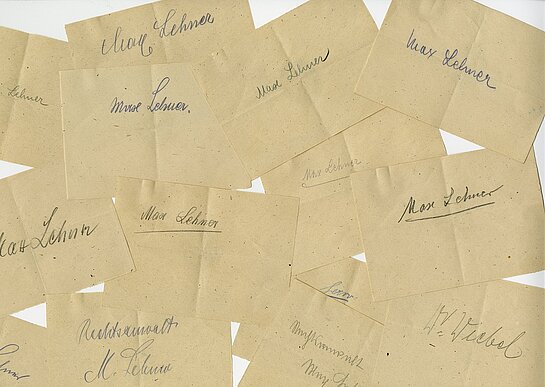 Max Lehner
Max Lehner
Max Lehner
Lehner
Max Lehner
Max Lehner.
Max Lehner
Max Lehner
Max Lehner
Lehner
Rechtsanwalt
M. Lehner
Dr Weibel